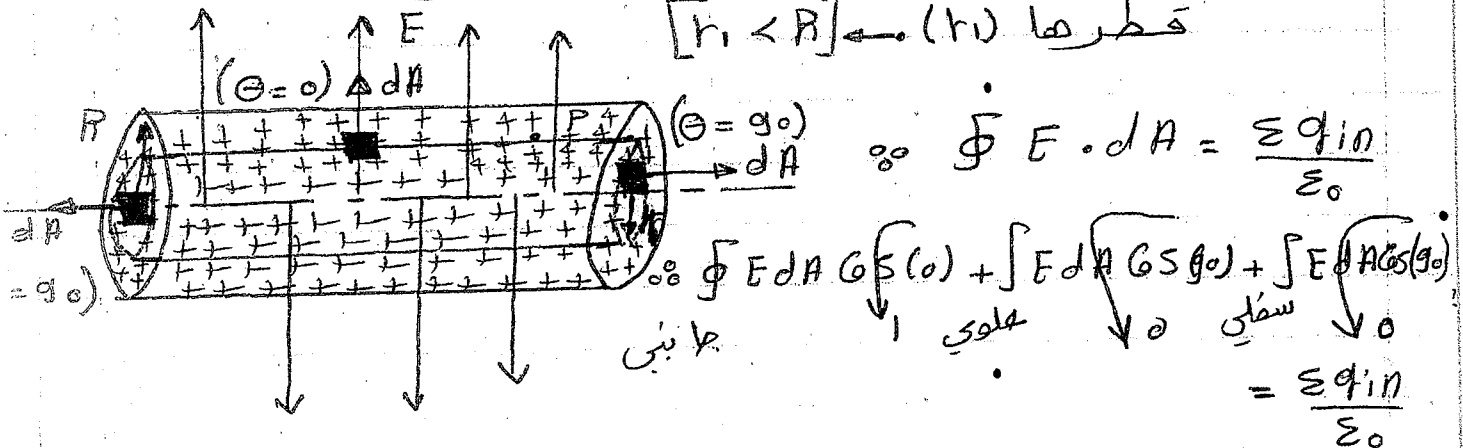 قطرها (r₁) ← [r₁ < R]
E
(θ = 0) dA
R
P
(θ = 90)
dA
dA
= 90)
∵ ∮ E . dA = Σ qin / ε₀
∵ ∮ E dA Cos(0) + ∫ E dA Cos 90) + ∫ E dA Cos(90)
جانبي 1 علوي 0 سفلي 0
= Σ qin / ε₀